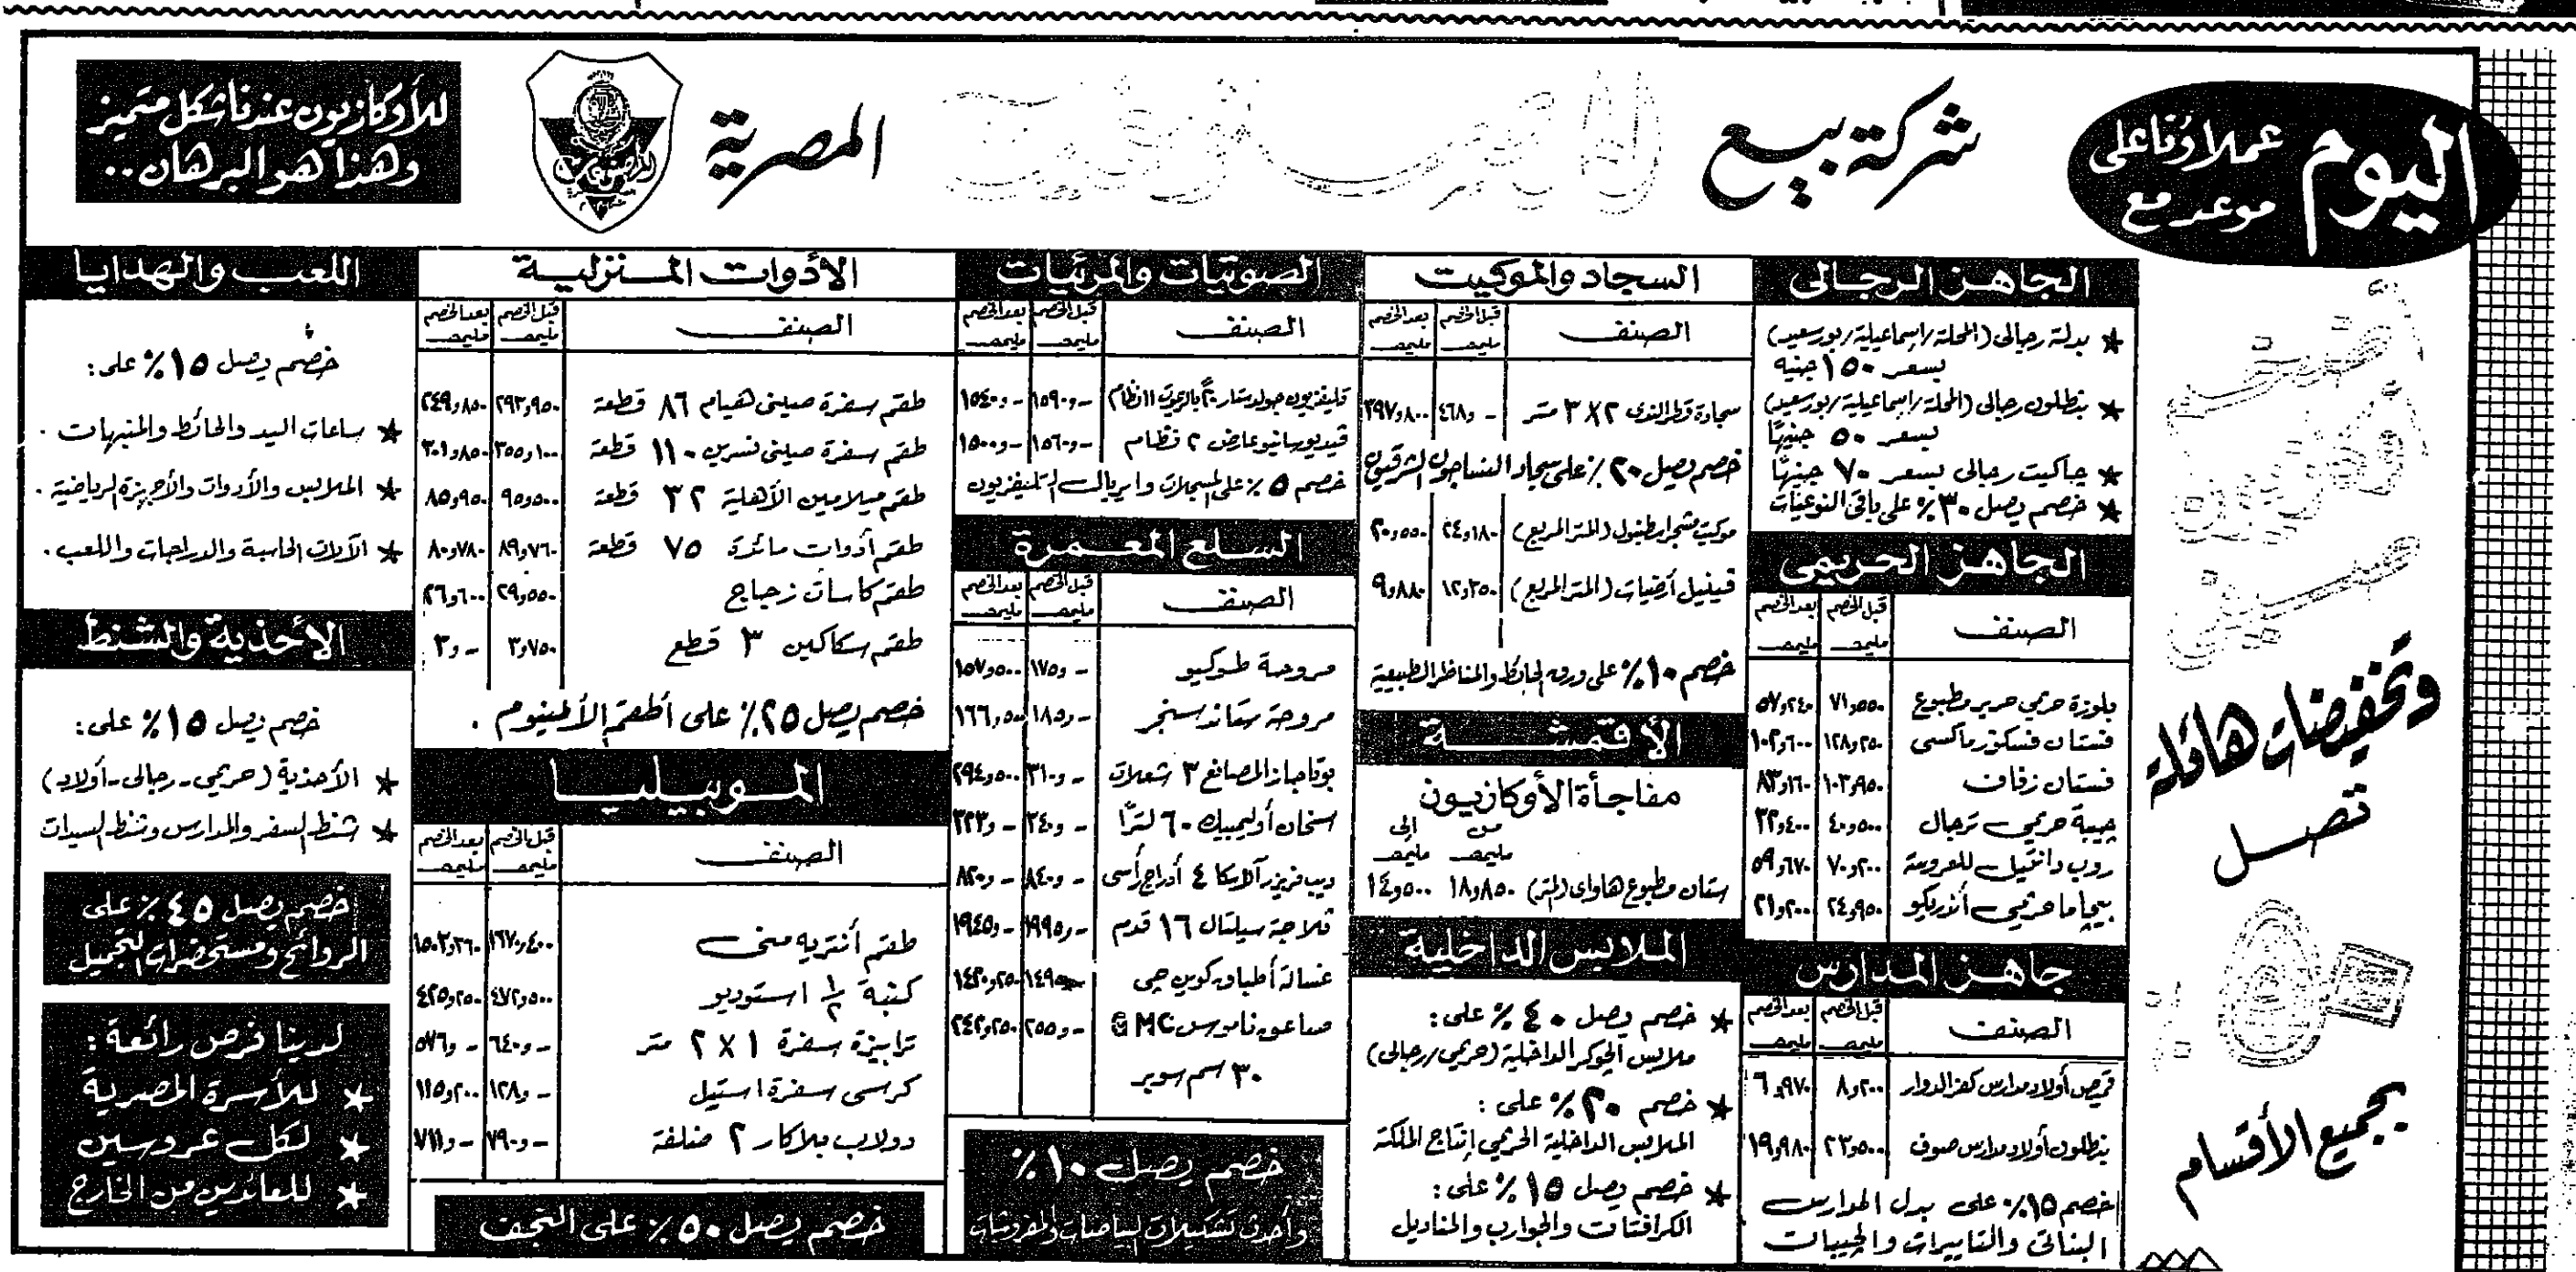 اليوم
عملاؤنا على
موعد مع
شركة بيع
المصنوعات
المصرية
للأوكازيون عندنا شكل متميز
وهذا هو البرهان..
وتخفيضات هائلة
تصل
٥٠٪
بجميع الأقسام
الجاهز الرجالى
★ بدلة رجالى (المحلة/إسماعيلية/بورسعيد)
بسعر ١٥٠ جنيه
★ بنطلون رجالى (المحلة/إسماعيلية/بورسعيد)
بسعر ٥٠ جنيهًا
★ جاكيت رجالى بسعر ٧٠ جنيهًا
★ خصم يصل ٣٠٪ على باقى النوعيات
الجاهز الحريمى
الصنف قبل الخصم بعد الخصم
مليم مليم
بلوزة حريمى حرير مطبوع ٧١٫٥٥٠ ٥٧٫٢٤٠
فستان فسكوز ماكسى ١٢٨٫٢٥٠ ١٠٢٫٦٠٠
فستان زفاف ١٠٣٫٩٥٠ ٨٣٫١٦٠
جيبة حريمى ترجال ٤٠٫٥٠٠ ٣٢٫٤٠٠
روب دانتيل للعروسة ٧٠٫٢٠٠ ٥٩٫٦٧٠
بيجاما حريمى أندريكو ٢٤٫٩٥٠ ٢١٫٢٠٠
جاهز المدارس
الصنف قبل الخصم بعد الخصم
مليم مليم
قميص أولاد مدارس كفر الدوار ٨٫٢٠٠ ٦٫٩٧٠
بنطلون أولاد مدارس صوف ٢٣٫٥٠٠ ١٩٫٩٨٠
خصم ١٥٪ على بدل المدارس
البناتى والتاييرات والجيبات
السجاد والموكيت
الصنف قبل الخصم بعد الخصم
مليم مليم
سجادة قطر الندى ٢×٣ متر ٤٦٨٫- ٣٩٧٫٨٠٠
خصم يصل ٢٠٪ على سجاد النساجون الشرقيون
موكيت مشجر إسطنبول (المتر المربع) ٢٤٫١٨٠ ٢٠٫٥٥٠
فينيل أرضيات (المتر المربع) ١٢٫٣٥٠ ٩٫٨٨٠
خصم ١٠٪ على ورق الحائط والمناظر الطبيعية
الأقمشة
مفاجأة الأوكازيون
من إلى
مليم مليم
ستان مطبوع هاواى (المتر) ١٨٫٨٥٠ ١٤٫٥٠٠
الملابس الداخلية
★ خصم يصل ٤٠٪ على:
ملابس الجوكر الداخلية (حريمى/رجالى)
★ خصم ٢٠٪ على:
الملابس الداخلية الحريمى إنتاج الملكة
★ خصم يصل ١٥٪ على:
الكرافتات والجوارب والمناديل
الصوتيات والمرئيات
الصنف قبل الخصم بعد الخصم
مليم مليم
تليفزيون جولدستار ٢٠ بالريموت ١١ نظام ١٥٩٠٫- ١٥٤٠٫-
فيديو سانيو عارض ٢ نظام ١٥٦٠٫- ١٥٠٠٫-
خصم ٥٪ على المسجلات وايريالات التليفزيون
السلع المعمرة
الصنف قبل الخصم بعد الخصم
مليم مليم
مروحة طوكيو ١٧٥٫- ١٥٧٫٥٠٠
مروحة ستاند سنجر ١٨٥٫- ١٦٦٫٥٠٠
بوتاجاز المصانع ٣ شعلات ٣١٠٫- ٢٩٤٫٥٠٠
سخان أوليمبيك ٦٠ لترًا ٣٤٠٫- ٣٢٣٫-
ديب فريزر ألاسكا ٤ أدراج رأسى ٨٤٠٫- ٨٢٠٫-
ثلاجة سيلتال ١٦ قدم ١٩٩٥٫- ١٩٤٥٫-
غسالة أطباق كوين جى ١٤٩٥٫- ١٤٢٠٫٢٥٠
صاعق ناموس GMC ٢٥٥٫- ٢٤٢٫٢٥٠
٣٠ سم سوبر
خصم يصل ١٠٪
وأحدث تشكيلات البياضات والمفروشات
الأدوات المنزلية
الصنف قبل الخصم بعد الخصم
مليم مليم
طقم سفرة صينى هيام ٨٦ قطعة ٢٩٣٫٩٥٠ ٢٤٩٫٨٥٠
طقم سفرة صينى نسرين ١١٠ قطعة ٣٥٥٫١٠٠ ٣٠١٫٨٥٠
طقم ميلامين الأهلية ٣٢ قطعة ٩٥٫٥٠٠ ٨٥٫٩٥٠
طقم أدوات مائدة ٧٥ قطعة ٨٩٫٧٦٠ ٨٠٫٧٨٠
طقم كاسات زجاج ٢٩٫٥٥٠ ٢٦٫٦٠٠
طقم سكاكين ٣ قطع ٣٫٧٥٠ ٣٫-
خصم يصل ٢٥٪ على أطقم الألمنيوم.
الموبيليا
الصنف قبل الخصم بعد الخصم
مليم مليم
طقم أنتريه منحى ١٦٧٠٫٤٠٠ ١٥٠٣٫٣٦٠
كنبة ½ استوديو ٤٧٢٫٥٠٠ ٤٢٥٫٢٥٠
ترابيزة سفرة ١×٢ متر ٦٤٠٫- ٥٧٦٫-
كرسى سفرة استيل ١٢٨٫- ١١٥٫٢٠٠
دولاب بلاكار ٢ ضلفة ٧٩٠٫- ٧١١٫-
خصم يصل ٥٠٪ على النجف
اللعب والهدايا
خصم يصل ١٥٪ على:
★ ساعات اليد والحائط والمنبهات.
★ الملابس والأدوات والأجهزة الرياضية.
★ الآلات الحاسبة والدراجات واللعب.
الأحذية والشنط
خصم يصل ١٥٪ على:
★ الأحذية (حريمى-رجالى-أولاد)
★ شنط السفر والمدارس وشنط السيدات
خصم يصل ٤٥٪ على
الروائح ومستحضرات التجميل
لدينا فرص رائعة:
★ للأسرة المصرية
★ لكل عروسين
★ للعائدين من الخارج